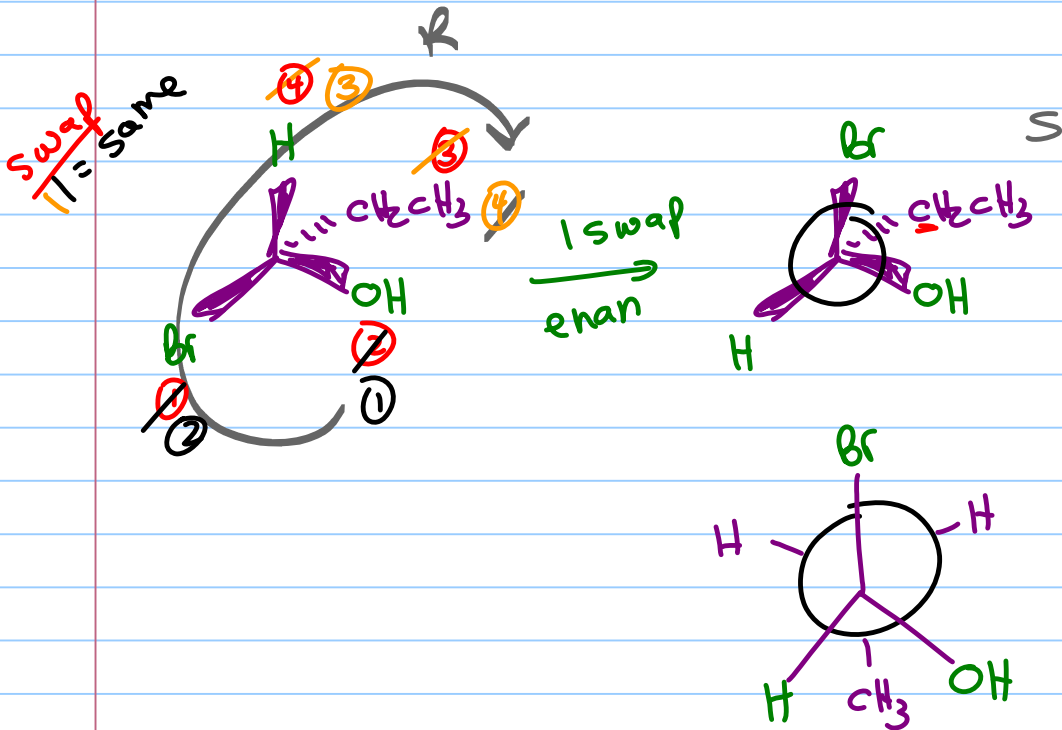 R
swap
1 = same
④ ③
H
③
④
CH2CH3
OH
Br
②
①
①
②
1 swap
enan
S
Br
CH2CH3
OH
H
Br
H
H
H
CH3
OH